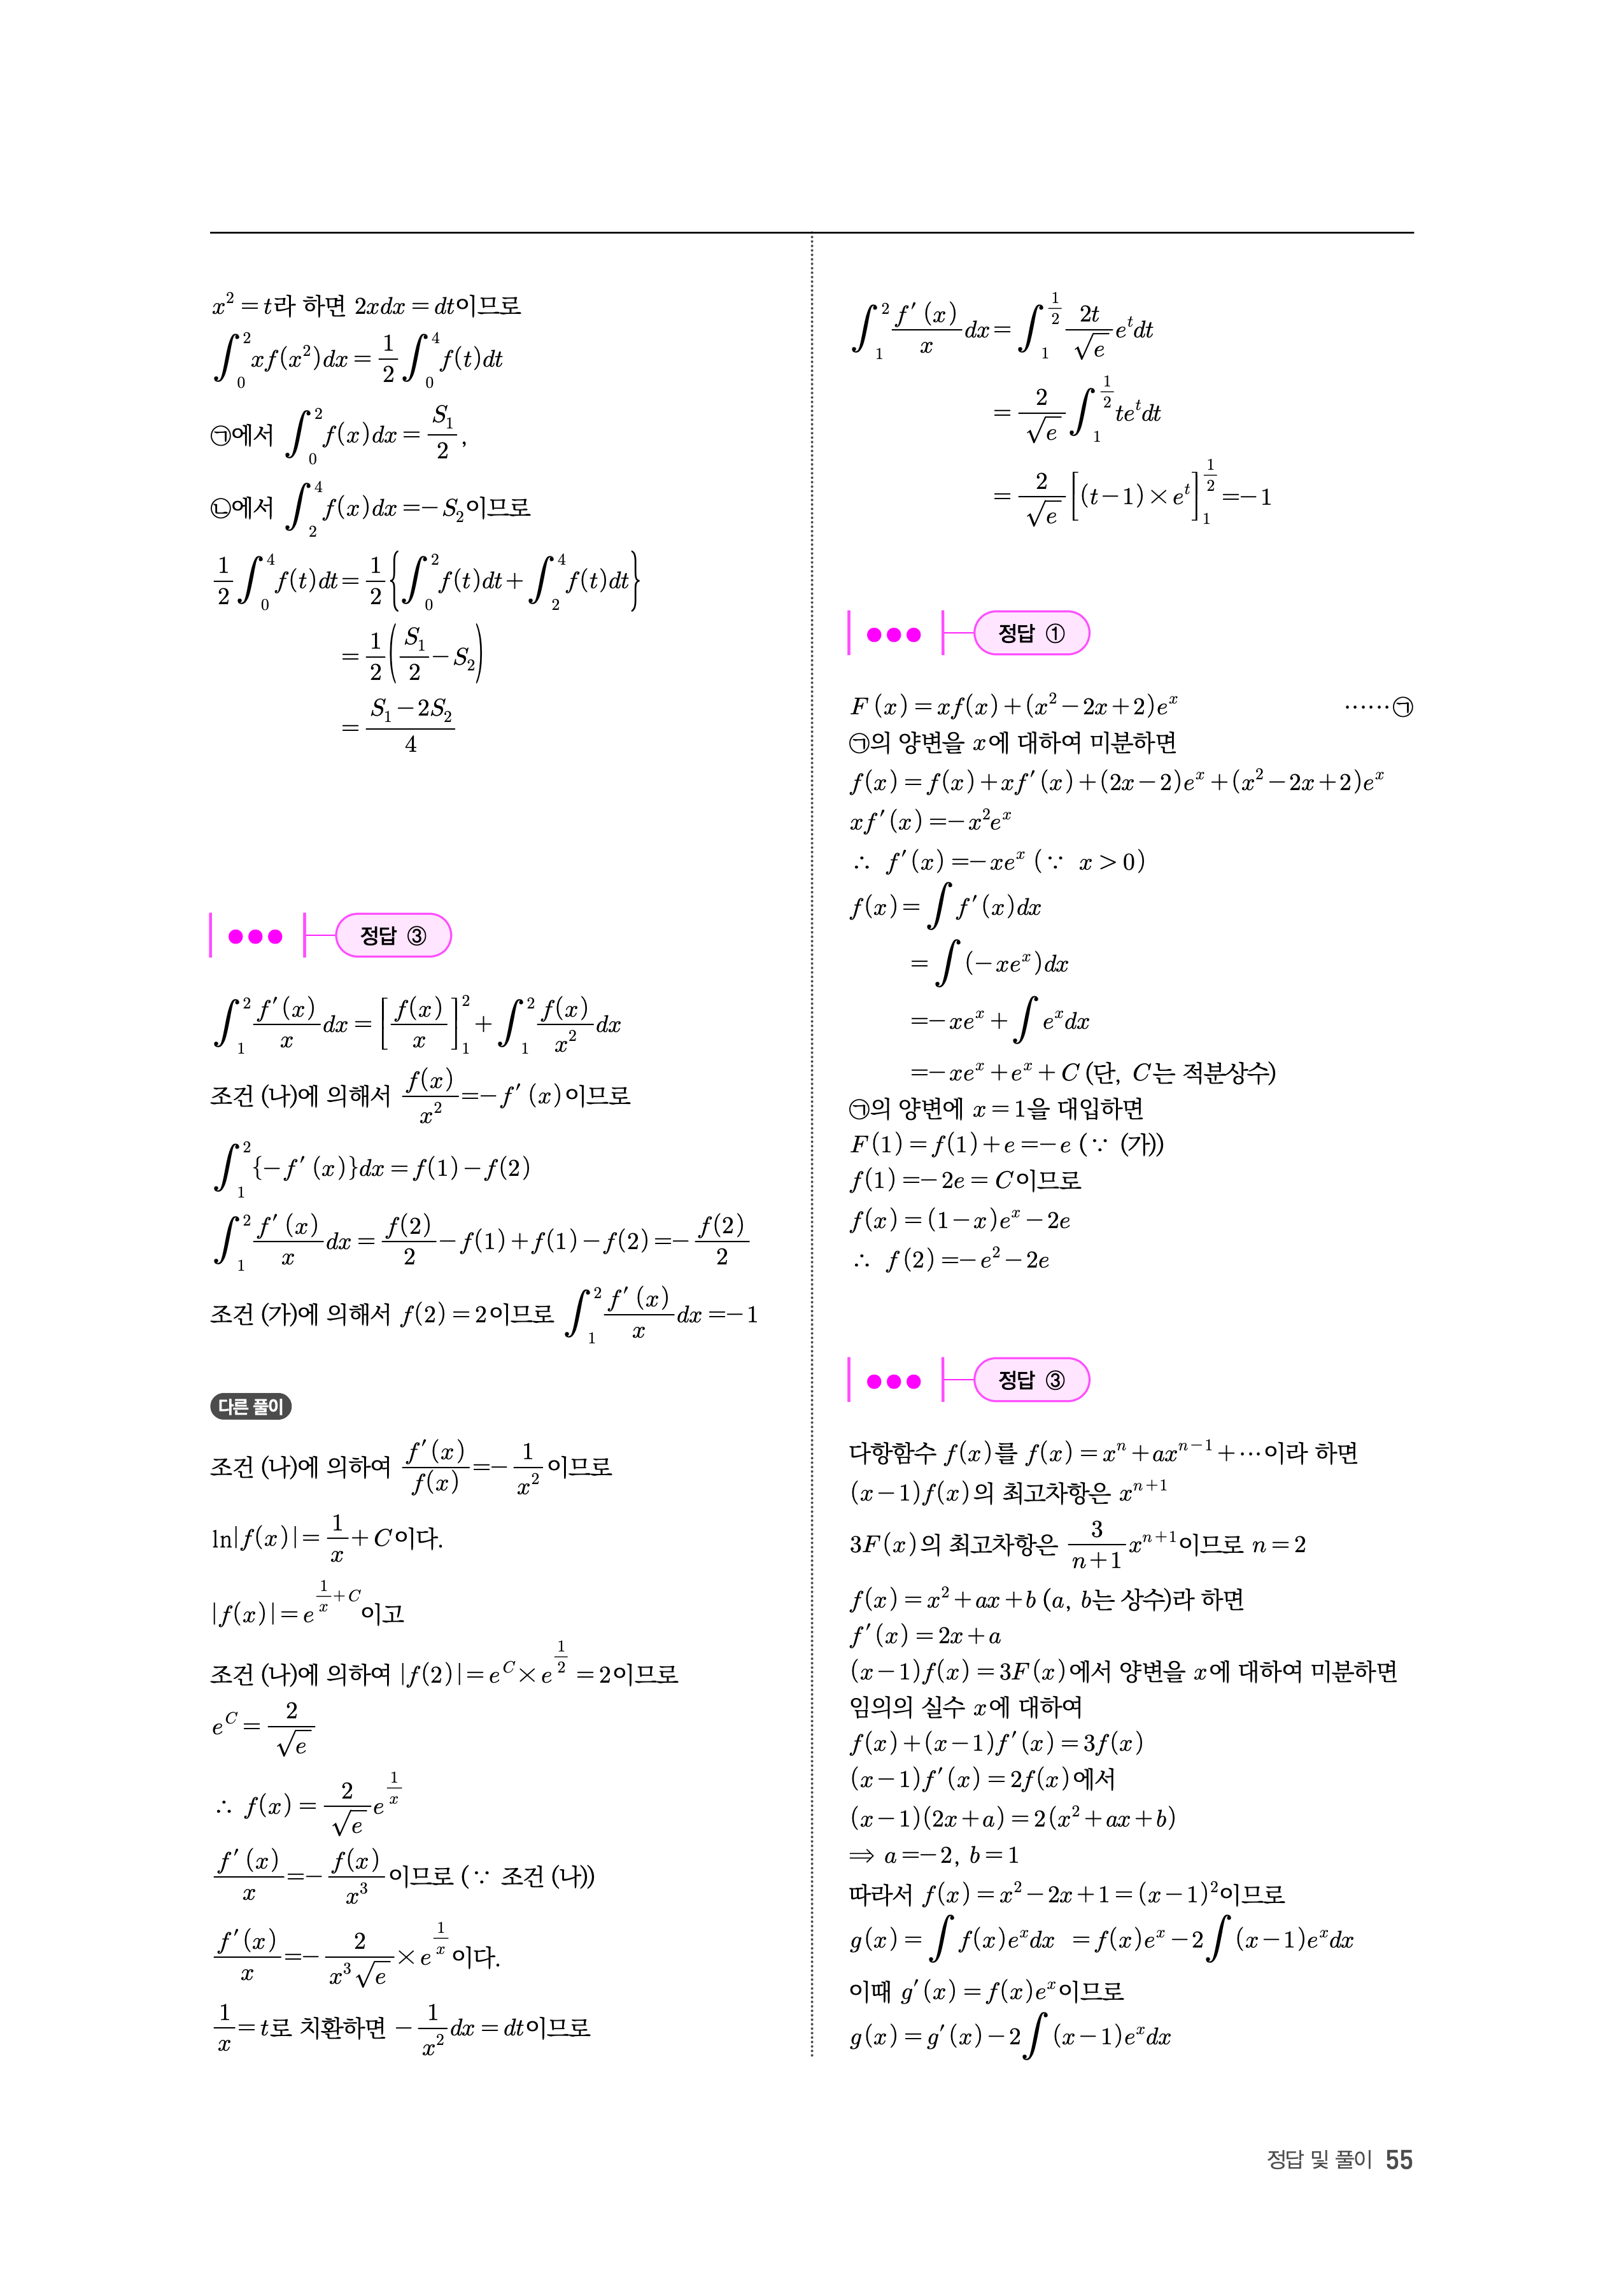 x² = t라 하면 2xdx = dt이므로
∫₀² xf(x²)dx = 1/2 ∫₀⁴ f(t)dt
㉠에서 ∫₀² f(x)dx = S₁/2,
㉡에서 ∫₂⁴ f(x)dx = −S₂이므로
1/2 ∫₀⁴ f(t)dt = 1/2 {∫₀² f(t)dt + ∫₂⁴ f(t)dt}
= 1/2 (S₁/2 − S₂)
= (S₁ − 2S₂)/4
정답 ③
∫₁² f′(x)/x dx = [f(x)/x]₁² + ∫₁² f(x)/x² dx
조건 (나)에 의해서 f(x)/x² = −f′(x)이므로
∫₁² {−f′(x)}dx = f(1) − f(2)
∫₁² f′(x)/x dx = f(2)/2 − f(1) + f(1) − f(2) = −f(2)/2
조건 (가)에 의해서 f(2) = 2이므로 ∫₁² f′(x)/x dx = −1
다른 풀이
조건 (나)에 의하여 f′(x)/f(x) = −1/x² 이므로
ln|f(x)| = 1/x + C이다.
|f(x)| = e^(1/x + C)이고
조건 (나)에 의하여 |f(2)| = e^C × e^(1/2) = 2이므로
e^C = 2/√e
∴ f(x) = 2/√e e^(1/x)
f′(x)/x = −f(x)/x³ 이므로 (∵ 조건 (나))
f′(x)/x = −2/(x³√e) × e^(1/x) 이다.
1/x = t로 치환하면 −1/x² dx = dt이므로
∫₁² f′(x)/x dx = ∫₁^(1/2) 2t/√e e^t dt
= 2/√e ∫₁^(1/2) te^t dt
= 2/√e [(t−1)×e^t]₁^(1/2) = −1
정답 ①
F(x) = xf(x) + (x² − 2x + 2)e^x ……㉠
㉠의 양변을 x에 대하여 미분하면
f(x) = f(x) + xf′(x) + (2x − 2)e^x + (x² − 2x + 2)e^x
xf′(x) = −x²e^x
∴ f′(x) = −xe^x (∵ x > 0)
f(x) = ∫ f′(x)dx
= ∫ (−xe^x)dx
= −xe^x + ∫ e^x dx
= −xe^x + e^x + C (단, C는 적분상수)
㉠의 양변에 x = 1을 대입하면
F(1) = f(1) + e = −e (∵ (가))
f(1) = −2e = C이므로
f(x) = (1 − x)e^x − 2e
∴ f(2) = −e² − 2e
정답 ③
다항함수 f(x)를 f(x) = x^n + ax^(n−1) + ⋯이라 하면
(x − 1)f(x)의 최고차항은 x^(n+1)
3F(x)의 최고차항은 3/(n+1) x^(n+1)이므로 n = 2
f(x) = x² + ax + b (a, b는 상수)라 하면
f′(x) = 2x + a
(x − 1)f(x) = 3F(x)에서 양변을 x에 대하여 미분하면
임의의 실수 x에 대하여
f(x) + (x − 1)f′(x) = 3f(x)
(x − 1)f′(x) = 2f(x)에서
(x − 1)(2x + a) = 2(x² + ax + b)
⇒ a = −2, b = 1
따라서 f(x) = x² − 2x + 1 = (x − 1)²이므로
g(x) = ∫ f(x)e^x dx = f(x)e^x − 2∫ (x − 1)e^x dx
이때 g′(x) = f(x)e^x이므로
g(x) = g′(x) − 2∫ (x − 1)e^x dx
정답 및 풀이 55